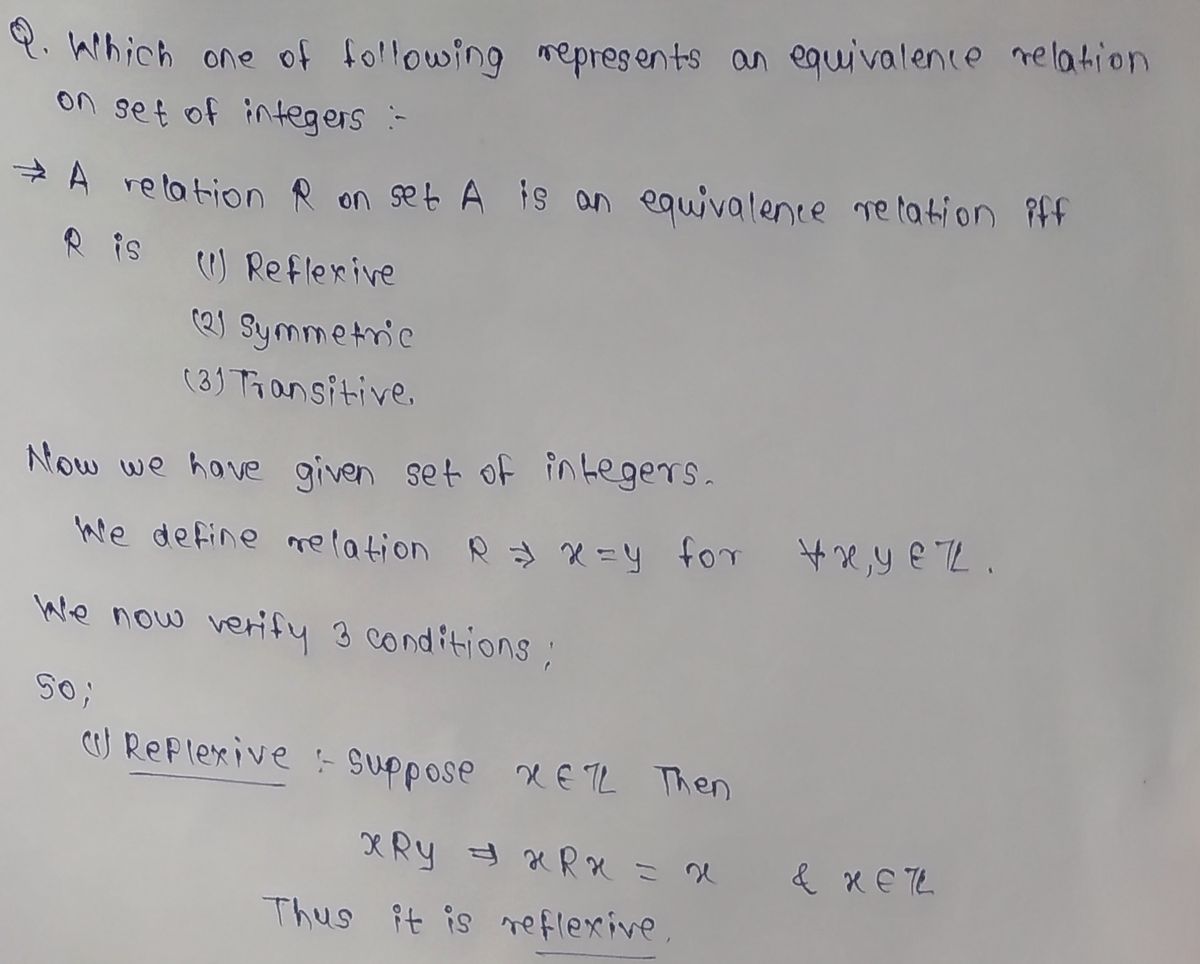 Q. Which one of following represents an equivalence relation
on set of integers :-
⇒ A relation R on set A is an equivalence relation iff
R is (1) Reflexive
(2) Symmetric
(3) Transitive.
Now we have given set of integers.
We define relation R ⇒ x=y for ∀x,y ∈ ℤ.
We now verify 3 conditions;
So;
(1) Reflexive :- Suppose x ∈ ℤ Then
xRy ⇒ xRx = x & x ∈ ℤ
Thus it is reflexive.